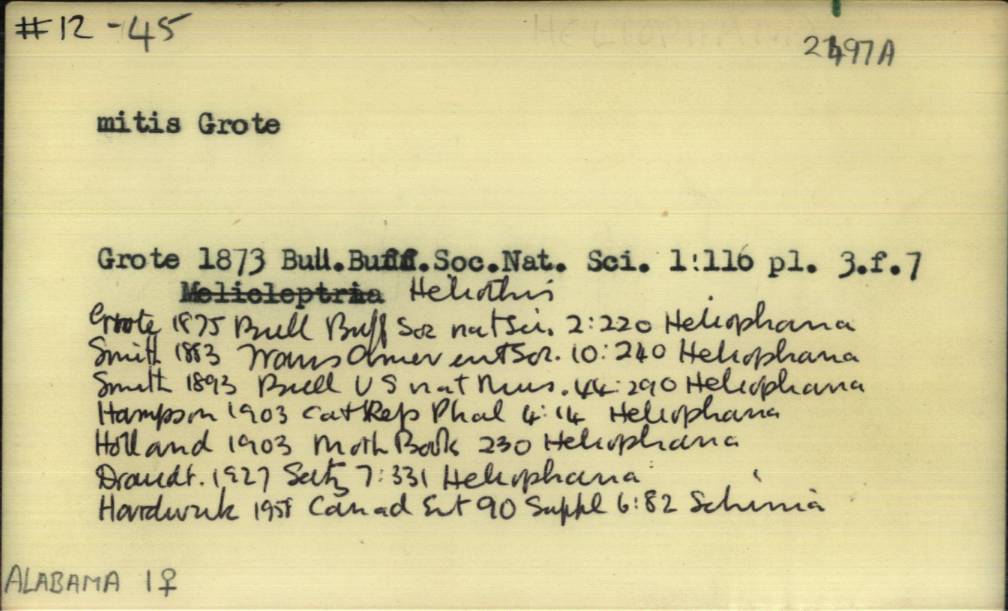 #12-45
2497A
mitis Grote
Grote 1873 Bull.Buff.Soc.Nat. Sci. 1:116 pl. 3.f.7
Melicleptria Heliothis
Grote 1875 Bull Buff Soc nat Sci. 2:220 Heliophana
Smith 1883 Trans Amer ent Soc. 10:240 Heliophana
Smith 1893 Bull U S nat Mus. 44:290 Heliophana
Hampson 1903 Cat Lep Phal 4:14 Heliophana
Holland 1903 Moth Book 230 Heliophana
Draudt. 1927 Seitz 7:331 Heliophana
Hardwick 1958 Canad Ent 90 Suppl 6:82 Schinia
ALABAMA 1♀